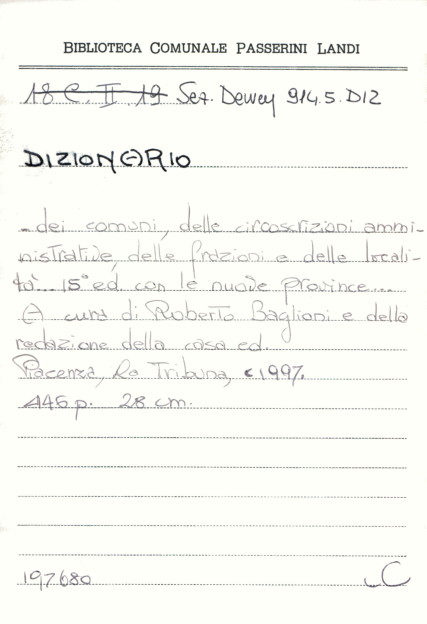 BIBLIOTECA COMUNALE PASSERINI LANDI
18 C. II 19 Sez. Dewey 914.5.DIZ
DIZIONARIO
- dei comuni, delle circoscrizioni ammi-
nistrative, delle frazioni e delle locali-
tà... 15ª ed. con le nuove province...
A cura di Roberto Baglioni e della
redazione della casa ed.
Piacenza, La Tribuna, c1997.
446 p. 28 cm.
197680